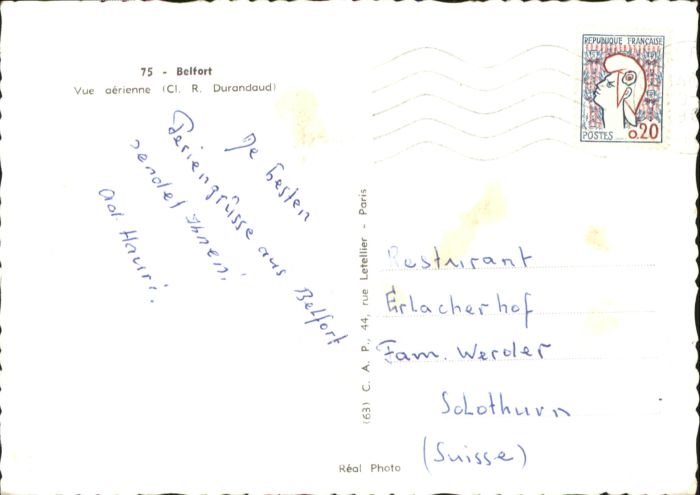 75 - Belfort
Vue aérienne (Cl. R. Durandaud)
RÉPUBLIQUE FRANÇAISE
POSTES
0.20
De besten
Feriengrüsse aus Belfort
sendet Ihnen:
Hauri.
(63) C. A. P., 44, rue Letellier - Paris
Resturant
Erlacherhof
Fam. Werder
Solothurn
(Suisse)
Réal Photo